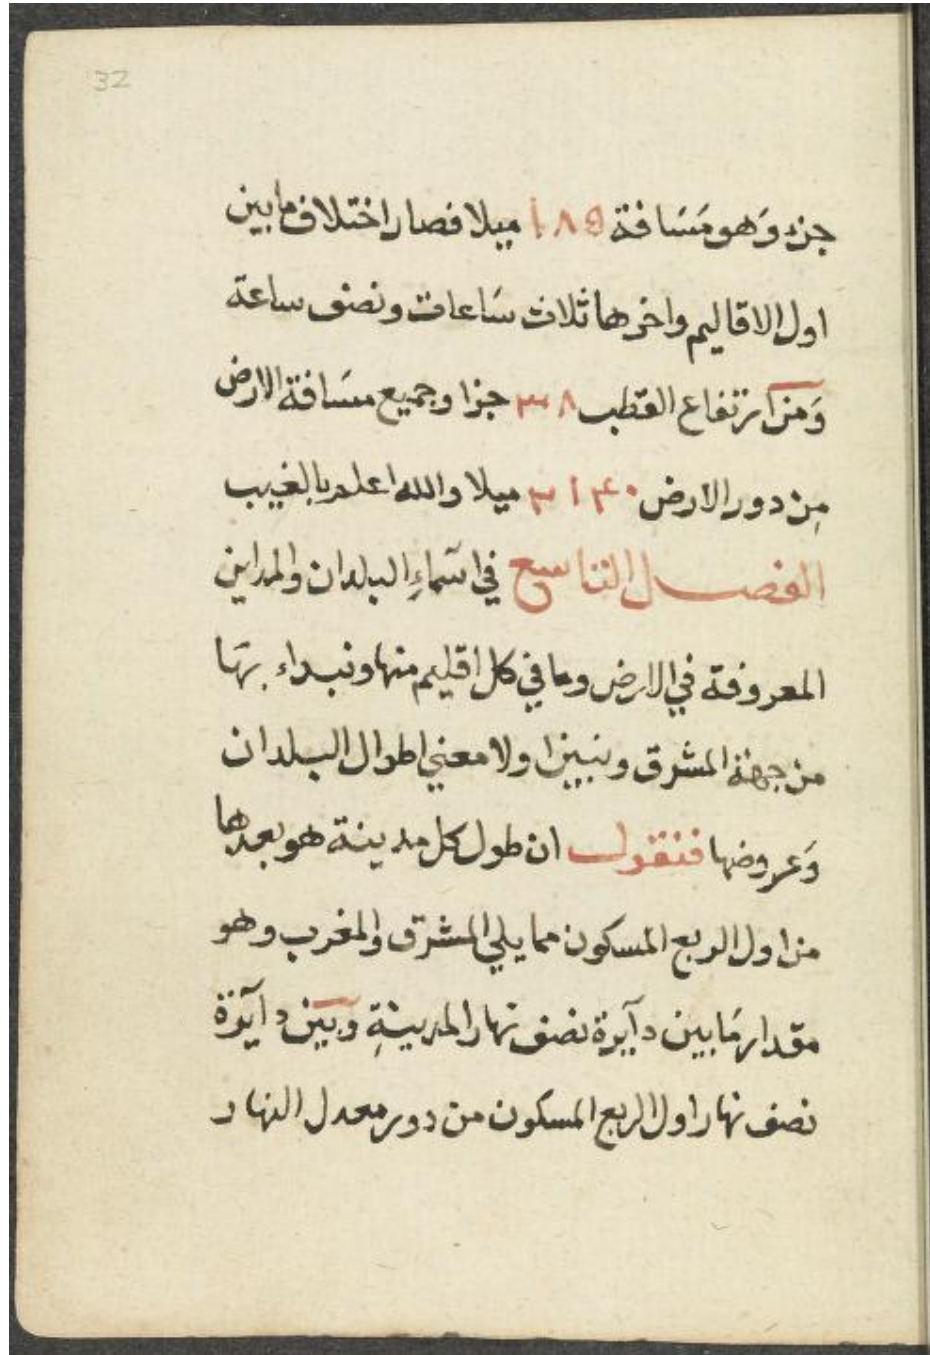 32
جزء وَهو مَسَافة ١٨٥ ميلا فصار اختلاف ما بين
اول الاقاليم واخرها ثلاث سَاعات ونصف ساعة
وَمن ارتفاع القطب ٣٨ جزا وجميع مسَافة الارض
مِن دور الارض ٣١٤٠ ميلا والله اعلم بالغيب
الفصل التاسع في اسَماءِ البلدان والمداين
المعروفة في الارض وما في كل اقليم منها ونبداء بهَا
من جهة المشرق ونبين اولا معني اطوال البلدان
وَعروضها فنقول ان طول كل مدينة هو بعدها
من اول الربع المسكون مما يلي المشرق والمغرب وهو
مقدار مَا بين دآيرة نصف نهار المدينةِ وبين دآيرة
نصف نهار اول الربع المسكون من دور معدل النهار